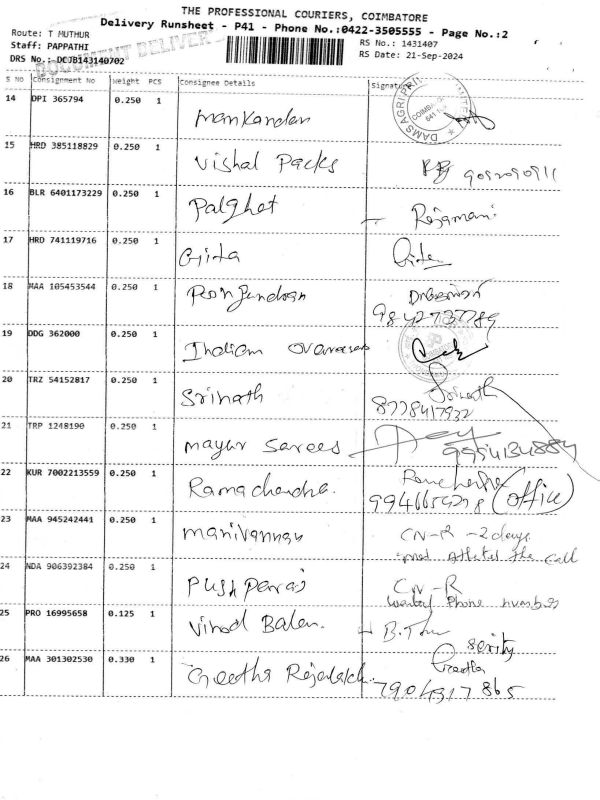 THE PROFESSIONAL COURIERS, COIMBATORE
Delivery Runsheet - P41 - Phone No.:0422-3505555 - Page No.:2
Route: T MUTHUR
RS No.: 1431407
Staff: PAPPATHI
RS Date: 21-Sep-2024
DRS No.: DCJB143140702
DOCUMENT DELIVERY
S NO Consignment No Weight PCS Consignee Details Signature
14 DPI 365794 0.250 1 manikandan
COIMBATORE
15 HRD 385118829 0.250 1 Vishal Packs
16 BLR 6401173229 0.250 1 Palghat Rajamani
17 HRD 741119716 0.250 1 Gita Gita
18 MAA 105453544 0.250 1
9842737789
19 DDG 362000 0.250 1 Indian overseas
20 TRZ 54152817 0.250 1 Srinath Srinath
8778417932
21 TRP 1248190 0.250 1 mayur sarees
9954134884
22 KUR 7002213559 0.250 1 Ramachandra. (office)
23 MAA 945242441 0.250 1 manivannan CN-R - 2 days
the call
24 NDA 906392384 0.250 1 Pushparaj CN-R
Phone number
25 PRO 16995658 0.125 1 Vinod Balan.
26 MAA 301302530 0.330 1 Geetha Geetha
7904317865